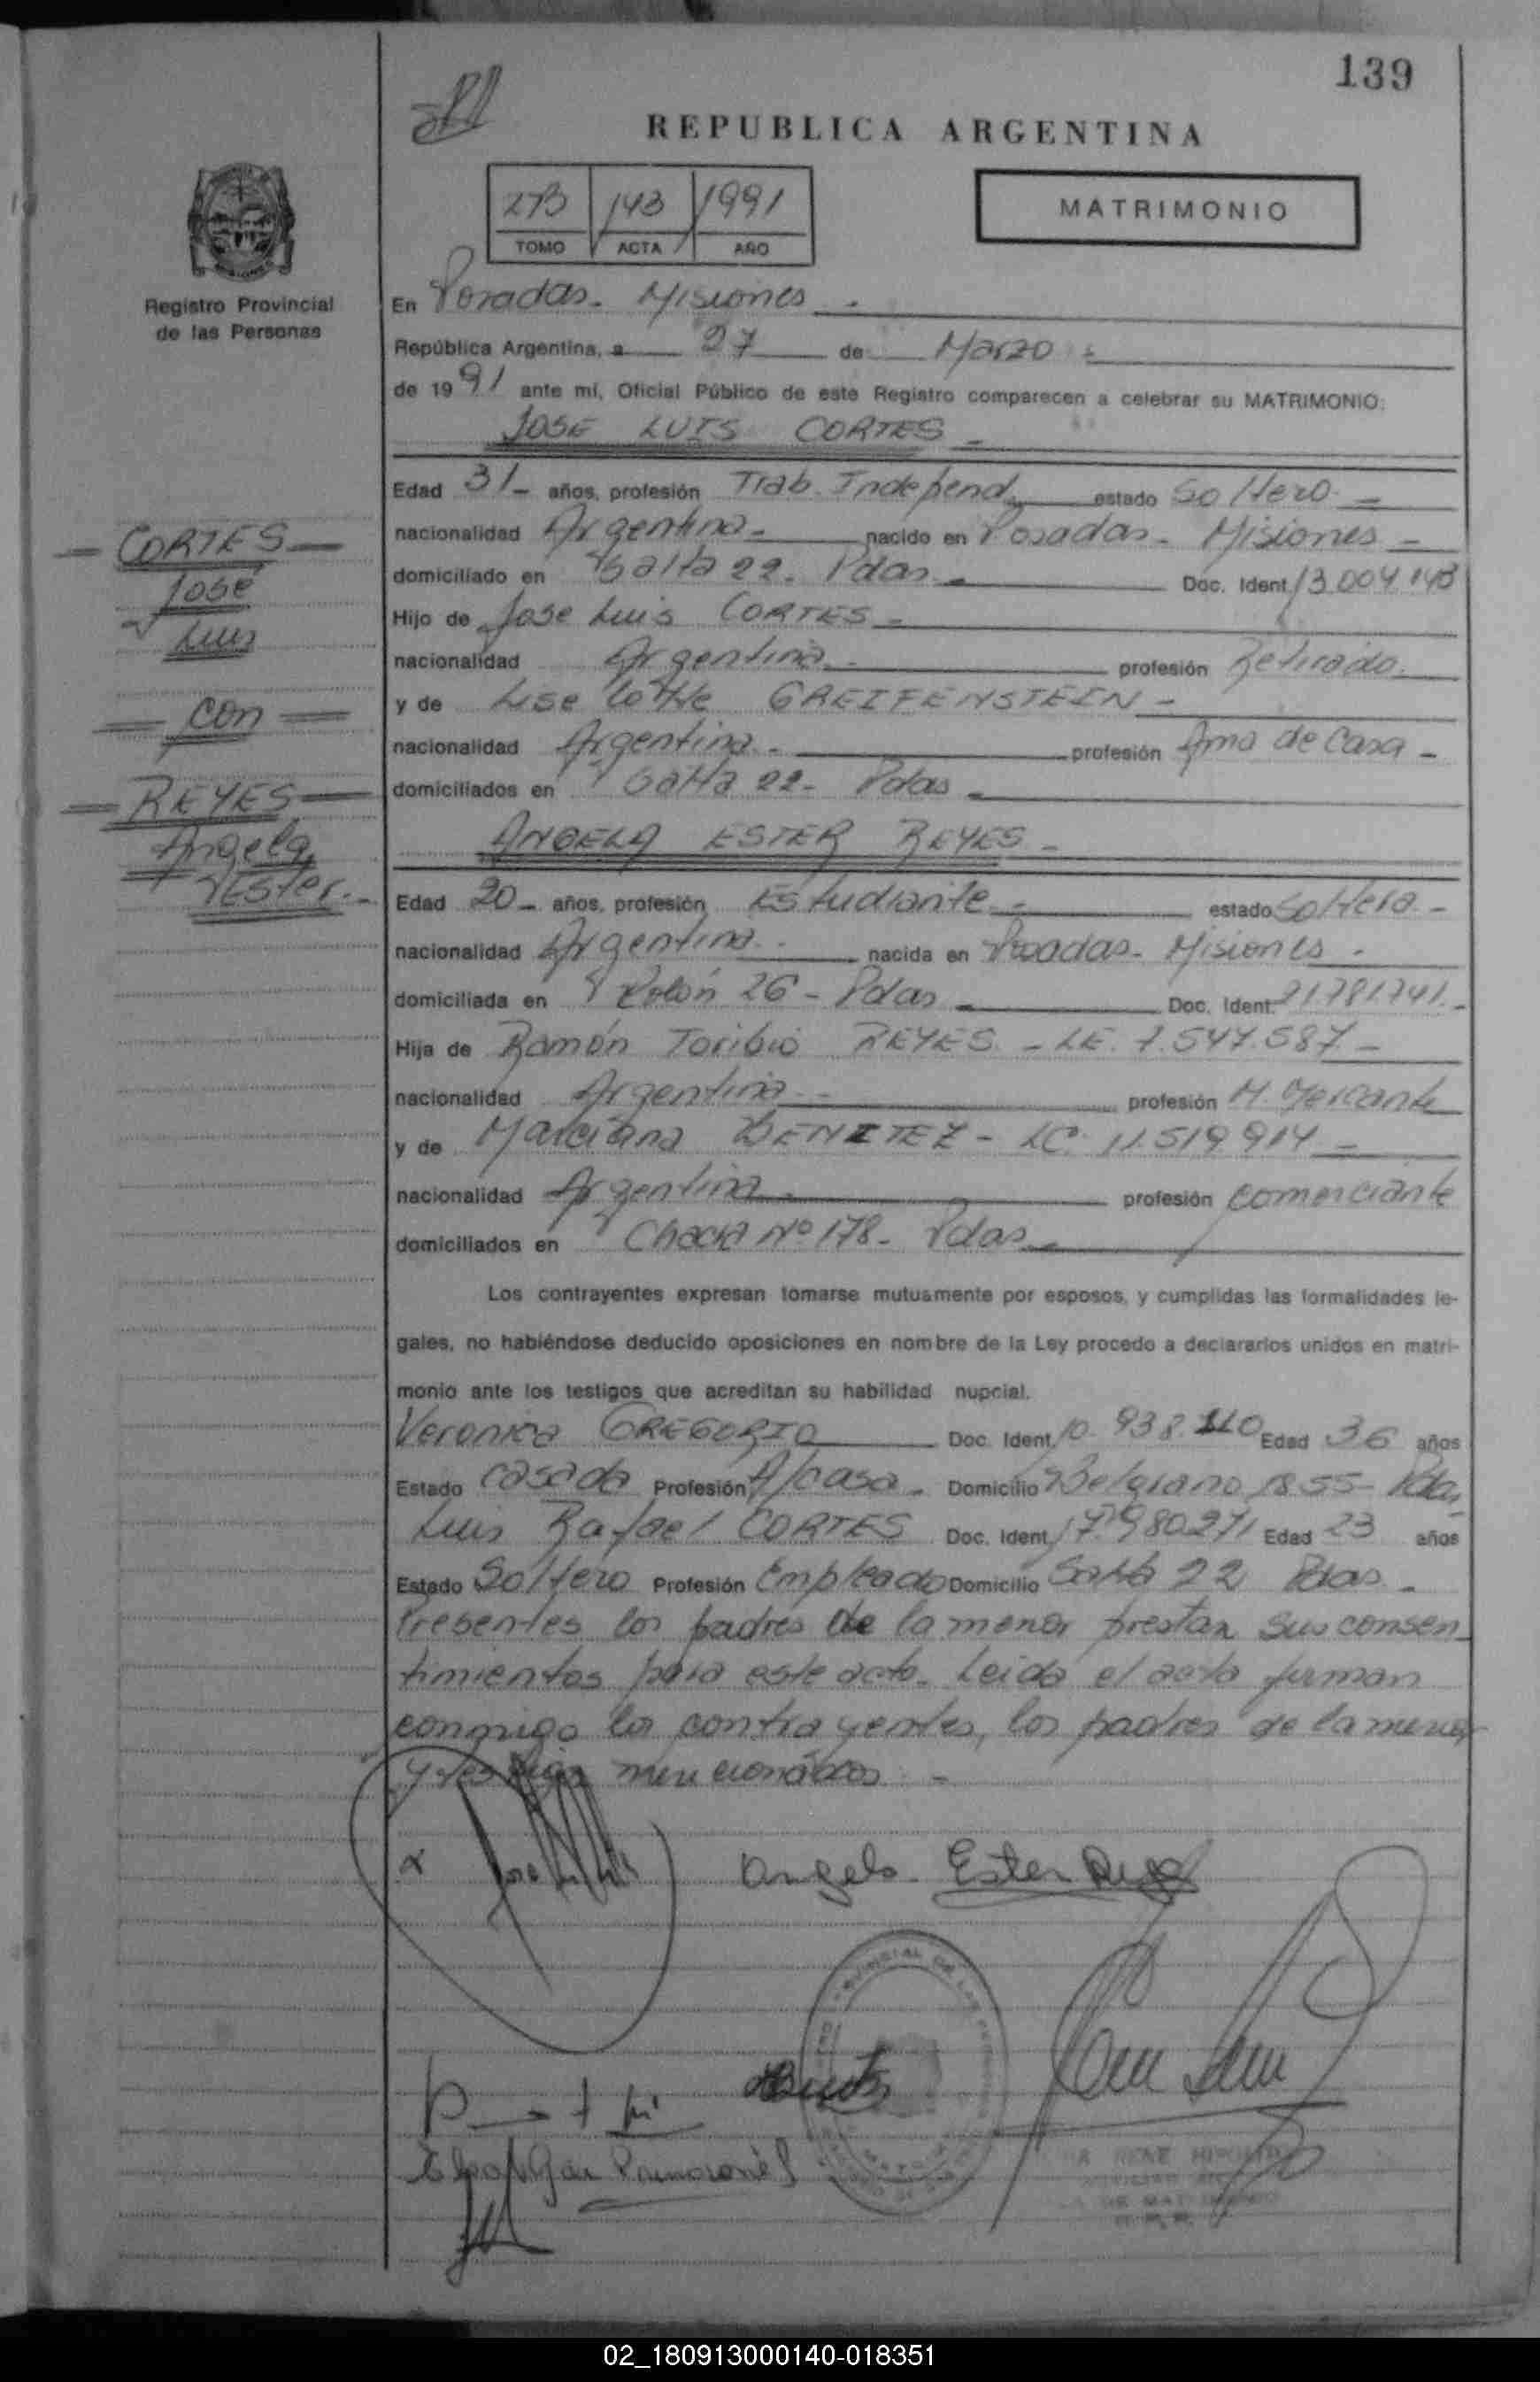 139
REPUBLICA ARGENTINA
2B 143 1991
TOMO ACTA AÑO
MATRIMONIO
Registro Provincial
de las Personas
En Posadas - Misiones -
República Argentina, a 27 de Marzo -
de 1991 ante mí, Oficial Público de este Registro comparecen a celebrar su MATRIMONIO:
JOSE LUIS CORTES -
Edad 31 - años, profesión Trab. Independ. estado Soltero. -
nacionalidad Argentina - nacido en Posadas - Misiones -
domiciliado en Salta 22. Pdas - Doc. Ident. 13.004.143
Hijo de Jose Luis CORTES -
nacionalidad Argentina - profesión Retirado.
y de Lise Lotte GREIFENSTEIN -
nacionalidad Argentina - profesión Ama de Casa -
domiciliados en Salta 22 - Pdas -
ANGELA ESTER REYES -
Edad 20 - años, profesión Estudiante - estado Soltera -
nacionalidad Argentina - nacida en Posadas - Misiones -
domiciliada en Colón 26 - Pdas - Doc. Ident. 21781741. -
Hija de Ramón Toribio REYES - LE. 7.547.587 -
nacionalidad Argentina - profesión M. Mercante
y de Marciana BENITEZ - LC. 11.519.914 -
nacionalidad Argentina - profesión comerciante
domiciliados en Chacra Nº 178 - Pdas -
Los contrayentes expresan tomarse mutuamente por esposos, y cumplidas las formalidades le-
gales, no habiéndose deducido oposiciones en nombre de la Ley procedo a declararlos unidos en matri-
monio ante los testigos que acreditan su habilidad nupcial.
Veronica GREGORIO Doc. Ident. 10.938.110 Edad 36 años
Estado casada Profesión A/casa - Domicilio Belgrano 1855 - Pdas
Luis Rafael CORTES Doc. Ident. 17.980.271 Edad 23 años
Estado Soltero Profesión Empleado Domicilio Salta 22 Pdas -
Presentes los padres de la menor prestan sus consen
timientos para este acto. Leida el acta firman
conmigo los contrayentes, los padres de la menor
y testigos mencionados -
CORTES
José
Luis
con
REYES
Angela
Ester. -
Angela Ester Reyes
02_180913000140-018351